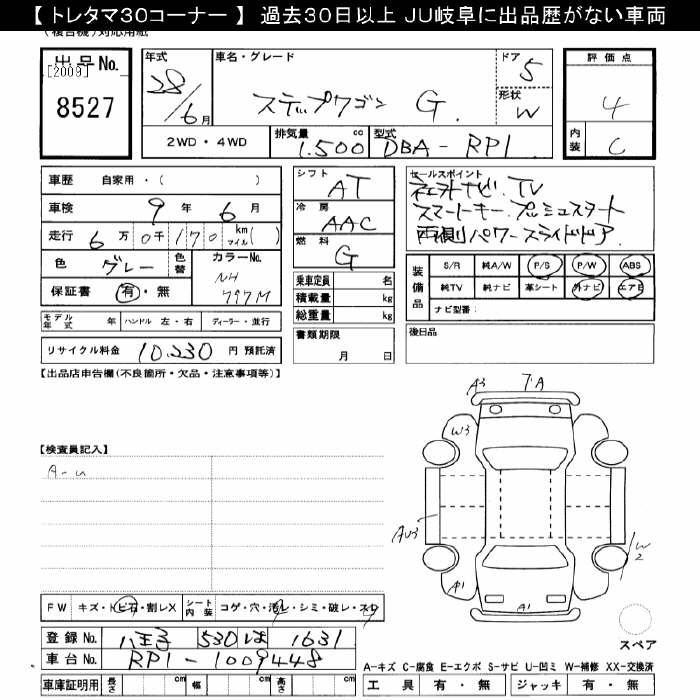 【 トレタマ30コーナー 】 過去30日以上 JU岐阜に出品歴がない車両
(複合機)対応用紙
出品No. [2009]
8527
年式 28/6月
車名・グレード
ステップワゴン G
ドア 5
形状 W
評価点
4
内装 C
2WD・4WD
排気量 1,500 cc
型式 DBA-RP1
車歴 自家用・( )
車検 9年 6月
走行 6万 0千 170 km マイル( )
色 グレー
色替
カラーNo. NH 797M
保証書 有・無
モデル年式 年 ハンドル 左・右 ディーラー・並行
リサイクル料金 10,230 円 預託済
シフト AT
冷房 AAC
燃料 G
乗車定員 名
積載量 kg
総重量 kg
書類期限
月 日
セールスポイント
ナビ.TV
スマートキー.プッシュスタート
両側パワースライドドア.
装備品
S/R 純A/W P/S P/W ABS
純TV 純ナビ 革シート 外ナビ エアB
ナビ型番:
後日品
【出品店申告欄(不良箇所・欠品・注意事項等)】
【検査員記入】
A-u
A3
W3
AU3
W2
A1
A1
FW キズ・トビ石・割レX
シート内装 コゲ・穴・汚レ・シミ・破レ・スレ
登録No. 八王子 530 1631
車台No. RP1-1009448
車庫証明用 長さ cm 幅 cm 高さ cm
スペア
A-キズ C-腐食 E-エクボ S-サビ U-凹ミ W-補修 XX-交換済
工具 有・無 ジャッキ 有・無